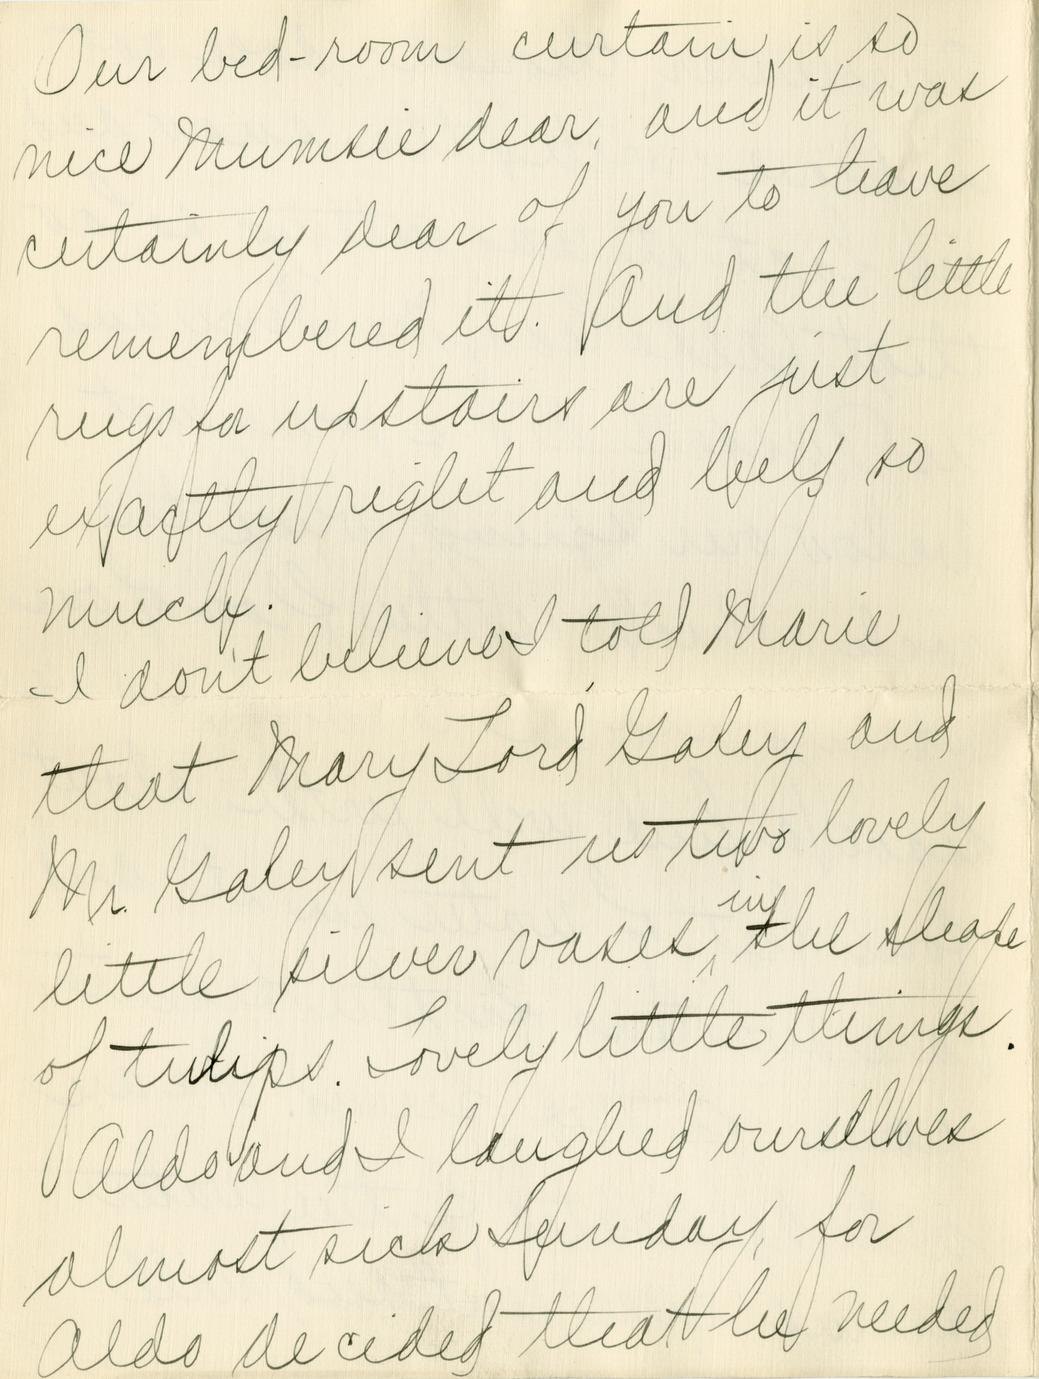 Our bed-room curtain is so
nice Mumsie dear, and it was
certainly dear of you to have
remembered it. And the little
rugs for upstairs are just
exactly right and help so
much.
I don't believe I told Marie
that Mary Lord Galey and
Mr. Galey sent us two lovely
little silver vases, in the shape
of tulips. Lovely little things.
Aldo and I laughed ourselves
almost sick Sunday, for
Aldo decided that he needed